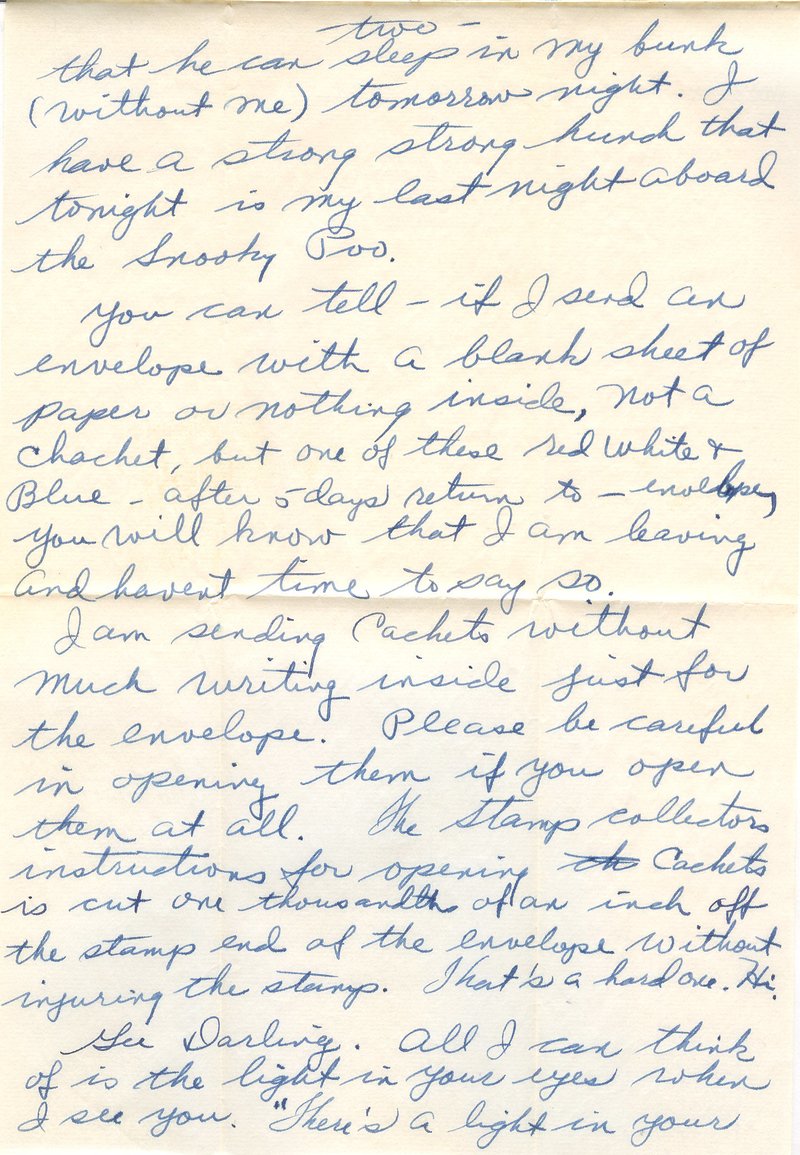 two -
that he can sleep in my bunk
(without me) tomorrow night. I
have a strong strong hunch that
tonight is my last night aboard
the Snooky Poo.
You can tell - if I send an
envelope with a blank sheet of
paper or nothing inside, not a
Chachet, but one of these red White &
Blue - after 5 days return to - envelopes,
you will know that I am leaving
and havent time to say so.
I am sending Cachets without
much writing inside just for
the envelope. Please be careful
in opening them if you open
them at all. The stamp collectors
instructions for opening Cachets
is cut one thousandth of an inch off
the stamp end of the envelope without
injuring the stamp. That's a hard one. Hi.
Gee Darling. All I can think
of is the light in your eyes when
I see you. "There's a light in your